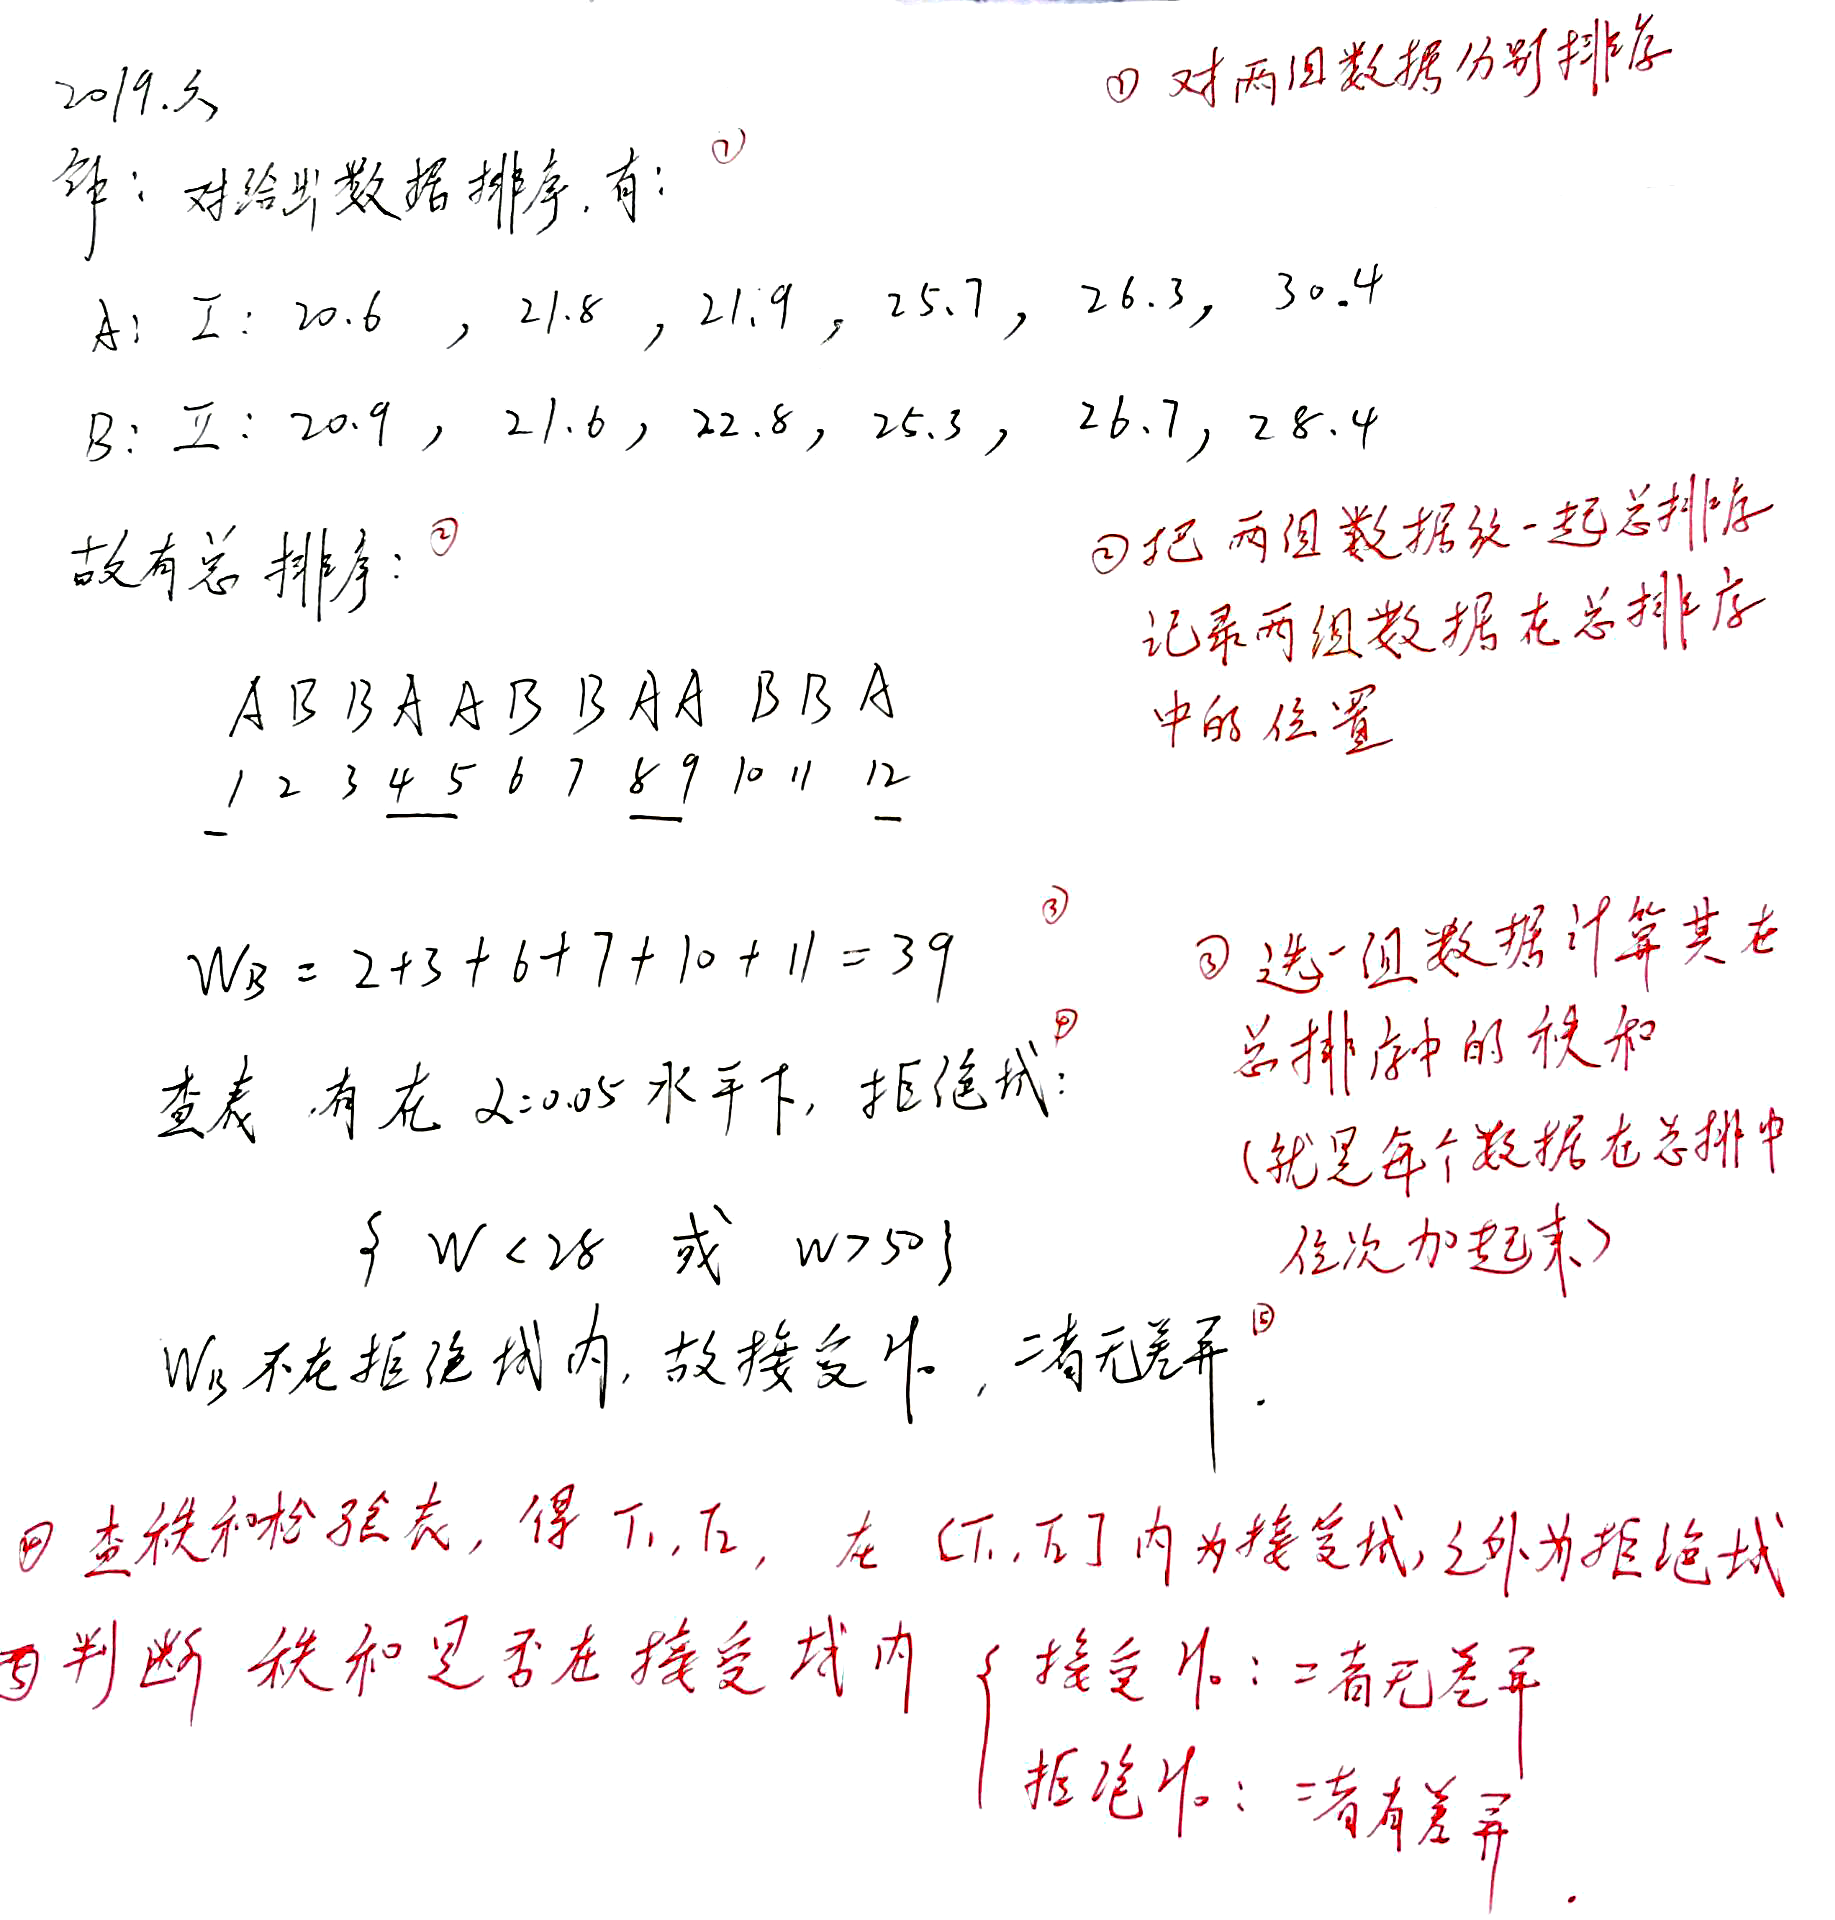 ① 对两组数据分别排序
2019.六
解：对给出数据排序，有：①
A: I: 20.6 , 21.8 , 21.9 , 25.7 , 26.3 , 30.4
B: II: 20.9 , 21.6 , 22.8 , 25.3 , 26.7 , 28.4
故有总排序：②
②把两组数据放一起总排序
记录两组数据在总排序
中的位置
A B B A A B B A A B B A
1 2 3 4 5 6 7 8 9 10 11 12
W_B = 2+3+6+7+10+11 = 39 ③
③选一组数据计算其在
总排序中的秩和
(就是每个数据在总排中
位次加起来)
查表,有在 α=0.05水平下，拒绝域④：
{ W < 28 或 W > 50 }
W_B不在拒绝域内，故接受H₀，二者无差异⑤.
④ 查秩和检验表，得 T₁, T₂，在 [T₁, T₂] 内为接受域，之外为拒绝域
⑤判断秩和是否在接受域内 { 接受H₀：二者无差异
拒绝H₀：二者有差异.